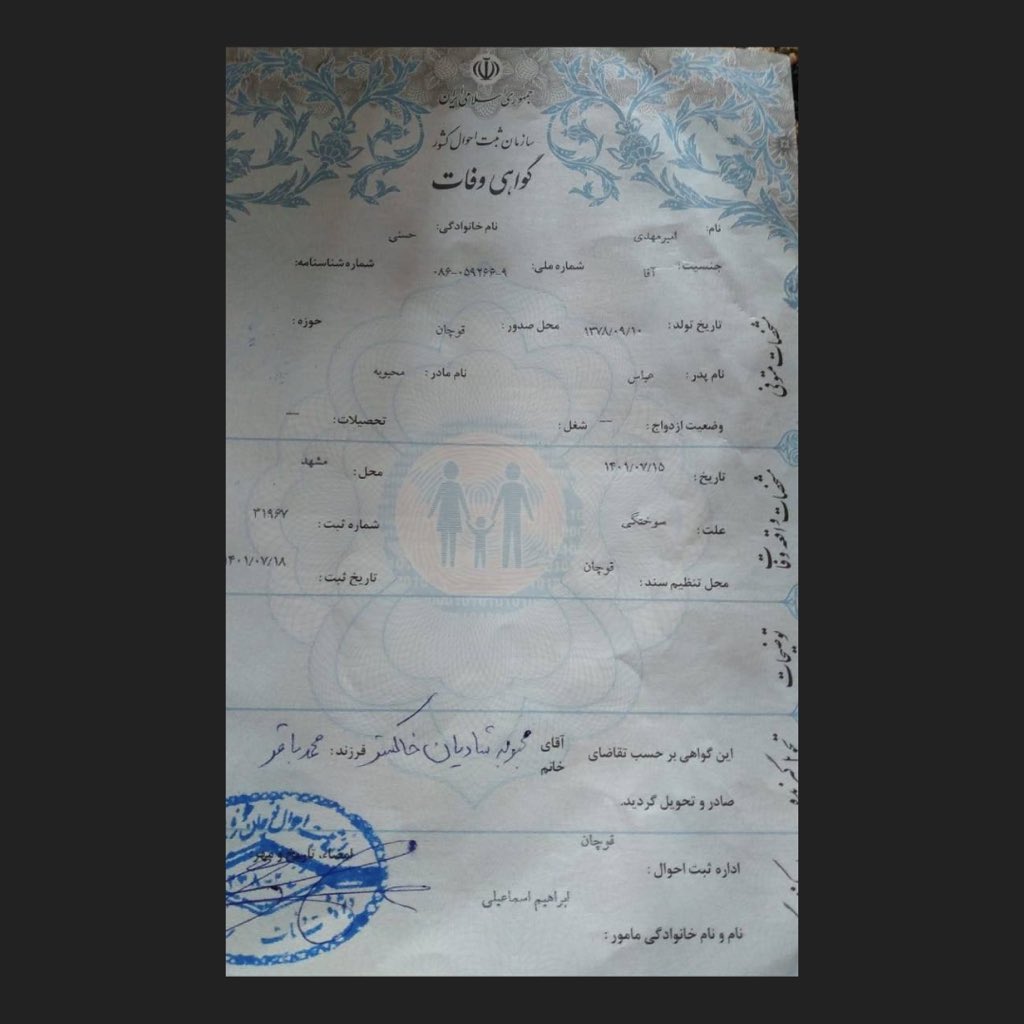 جمهوری اسلامی ایران
سازمان ثبت احوال کشور
گواهی وفات
نام: امیرمهدی نام خانوادگی: حسنی
جنسیت: آقا شماره ملی: ۰۸۶-۰۵۹۲۶۶-۹ شماره شناسنامه:
تاریخ تولد: ۱۳۷۸/۰۹/۱۰ محل صدور: قوچان حوزه:
نام پدر: عباس نام مادر: محبوبه
وضعیت ازدواج: — شغل: تحصیلات: —
مشخصات متوفی
تاریخ: ۱۴۰۱/۰۷/۱۵ محل: مشهد
علت: سوختگی شماره ثبت: ۳۱۹۶۷
محل تنظیم سند: قوچان تاریخ ثبت: ۱۴۰۱/۰۷/۱۸
مشخصات واقعه وفات
توضیحات
این گواهی بر حسب تقاضای آقای خانم محبوبه شادیان خاکستر فرزند: محمد باقر
صادر و تحویل گردید.
اداره ثبت احوال: قوچان
امضاء، تاریخ و مهر
نام و نام خانوادگی مامور: ابراهیم اسماعیلی
ثبت احوال قوچان